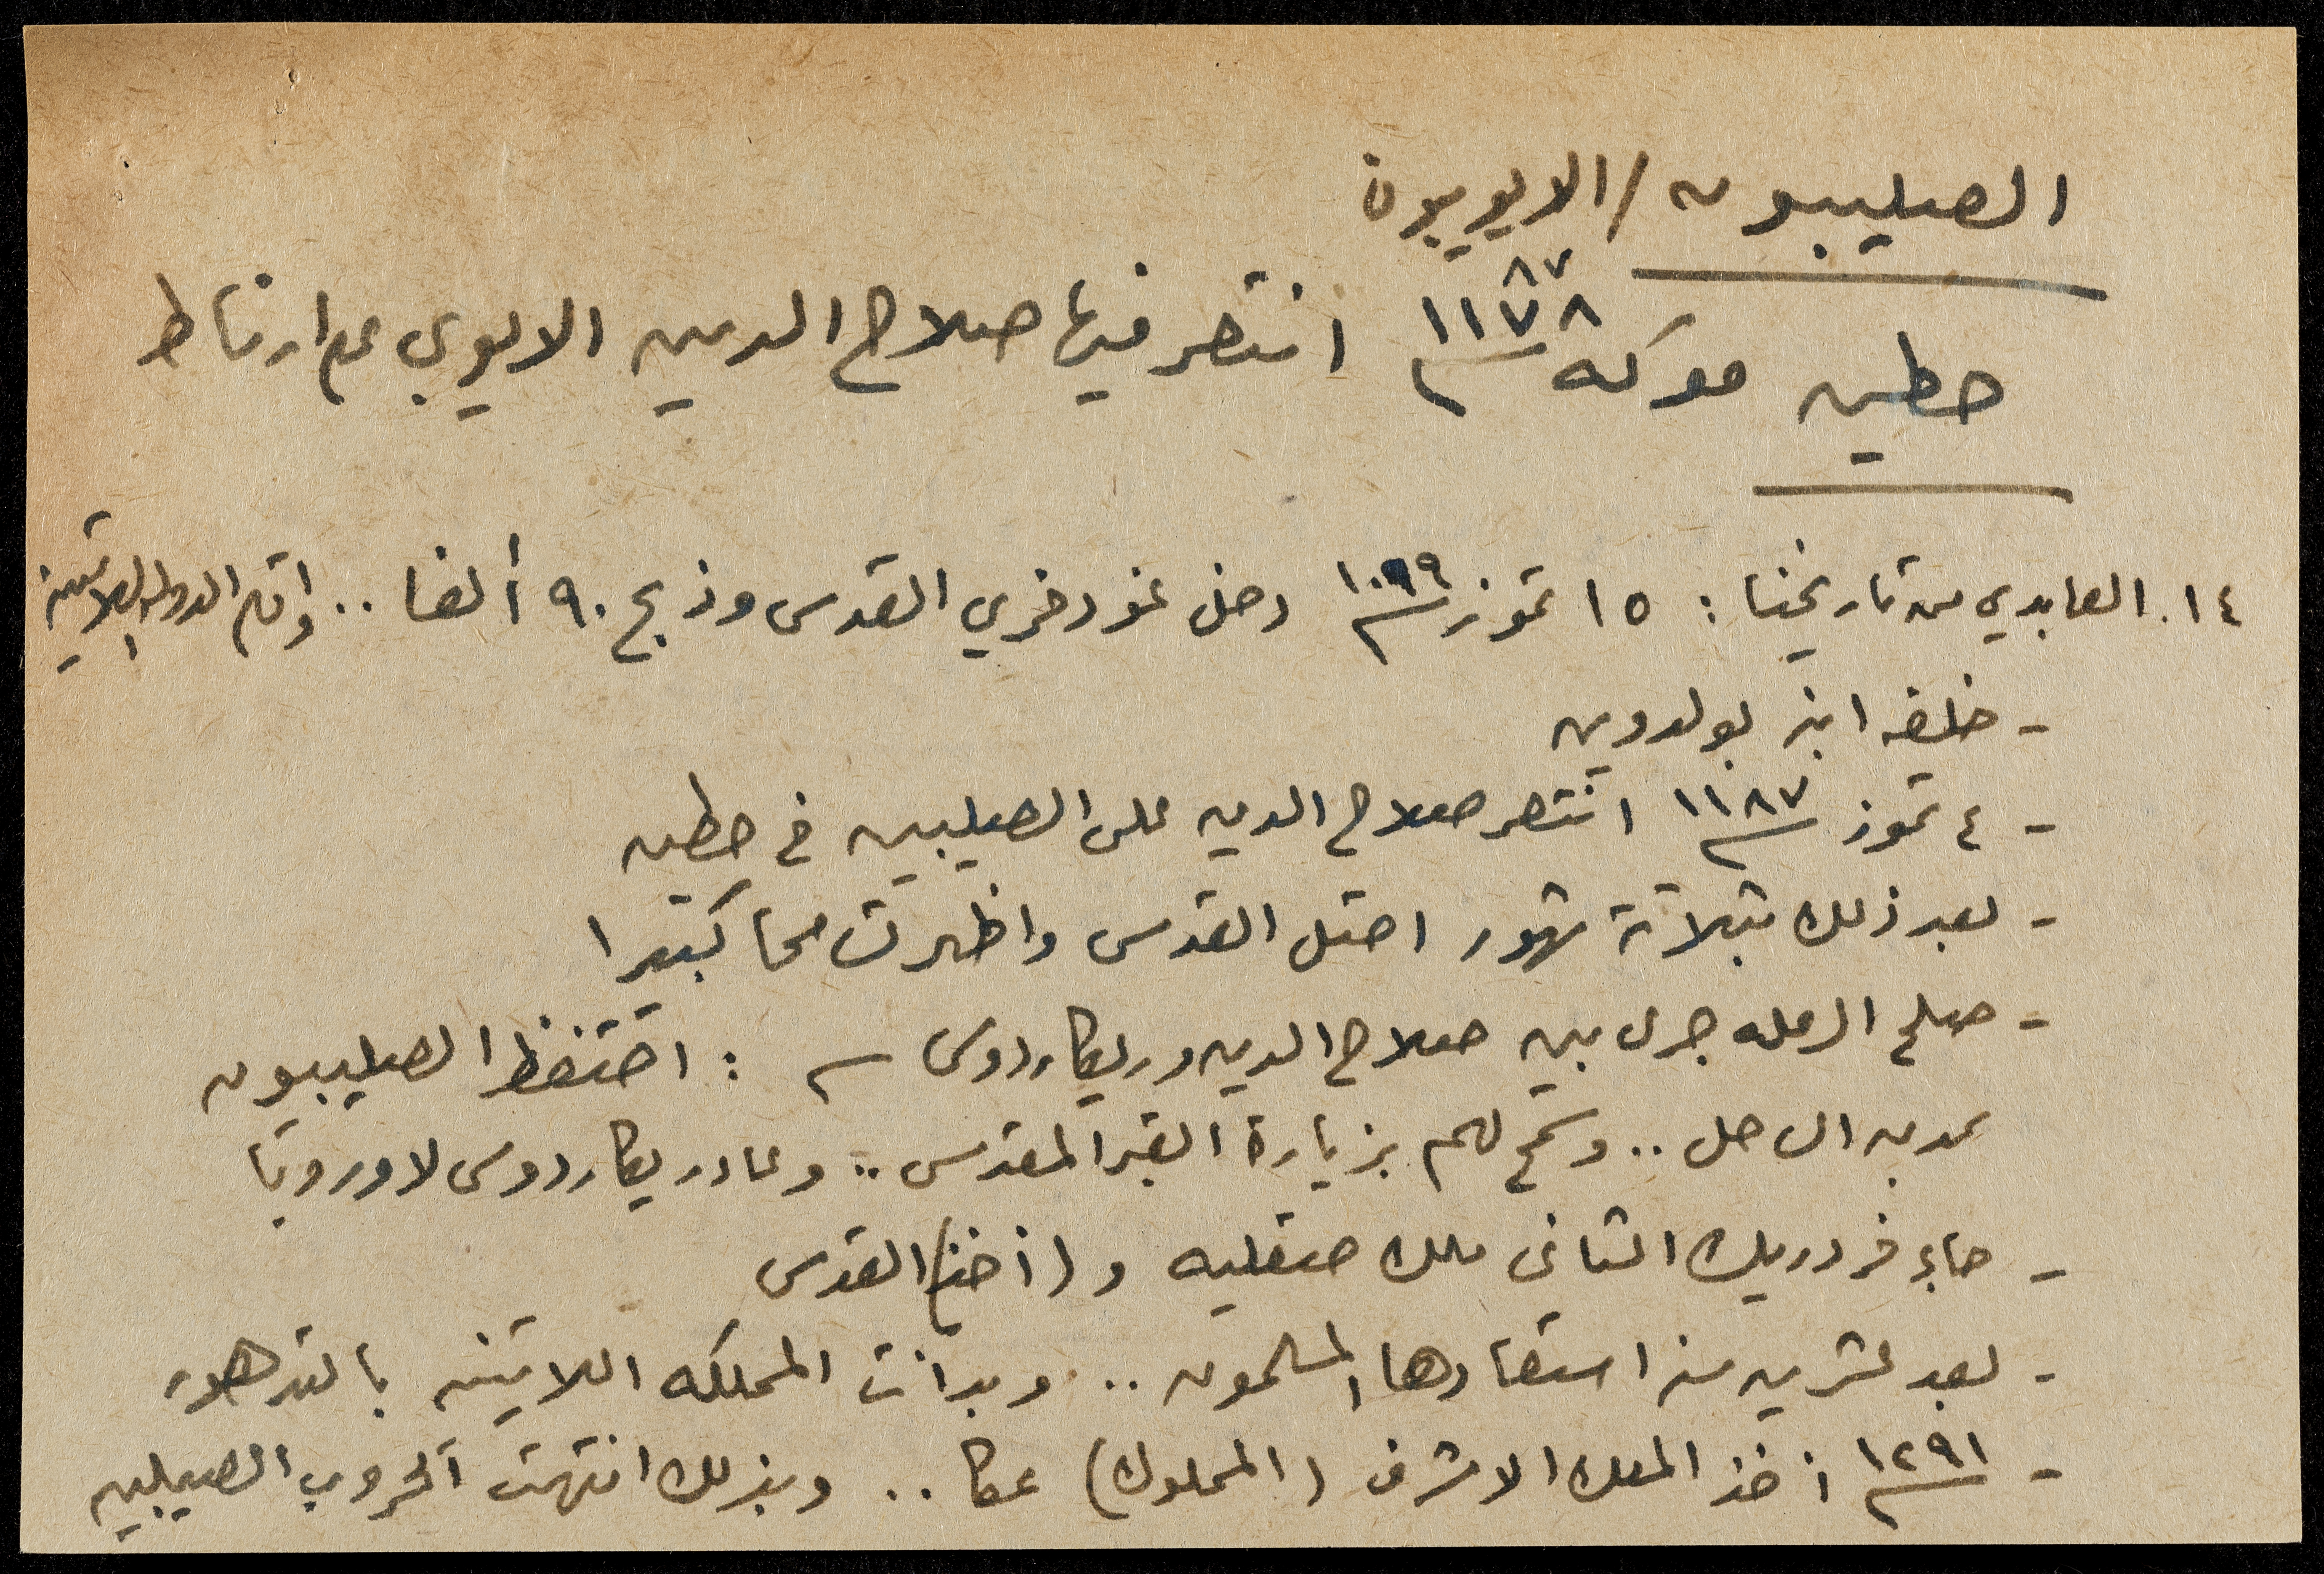 الصليبيون / الايوبيون
حطين معركة ١١٧٨ ٨٧ انتصر فيها صلاح الدين الايوبي على ارناط
١٤. العابدي من تاريخنا : ١٥ تموز ١٠٩٩ دخل غودفري القدس وذبح ٩٠ ألفا .. واقام الدولة اللاتينية
- خلفه ابنه بولدوين
- ٤ تموز ١١٨٧ انتصر صلاح الدين على الصليبيين في حطين
- بعد ذلك بثلاثة شهور احتل القدس واظهر تسامحا كبيرا
- صلح الرمله جرى بين صلاح الدين وريكاردوس : احتفظ الصليبيون
بمدن الساحل .. وسمح لهم بزيارة القبر المقدس .. وعاد ريكاردوس لاوروبا
- جاء فردريك الثاني ملك صقليه و (أخذ) القدس
- بعد عشرين سنه استعادها المسلمون .. وبدأت المملكه اللاتينيه بالتدهور
- ١٢٩١ أخذ الملك الاشرف (المملوك) عكا .. وبذلك انتهت الحروب الصليبيه